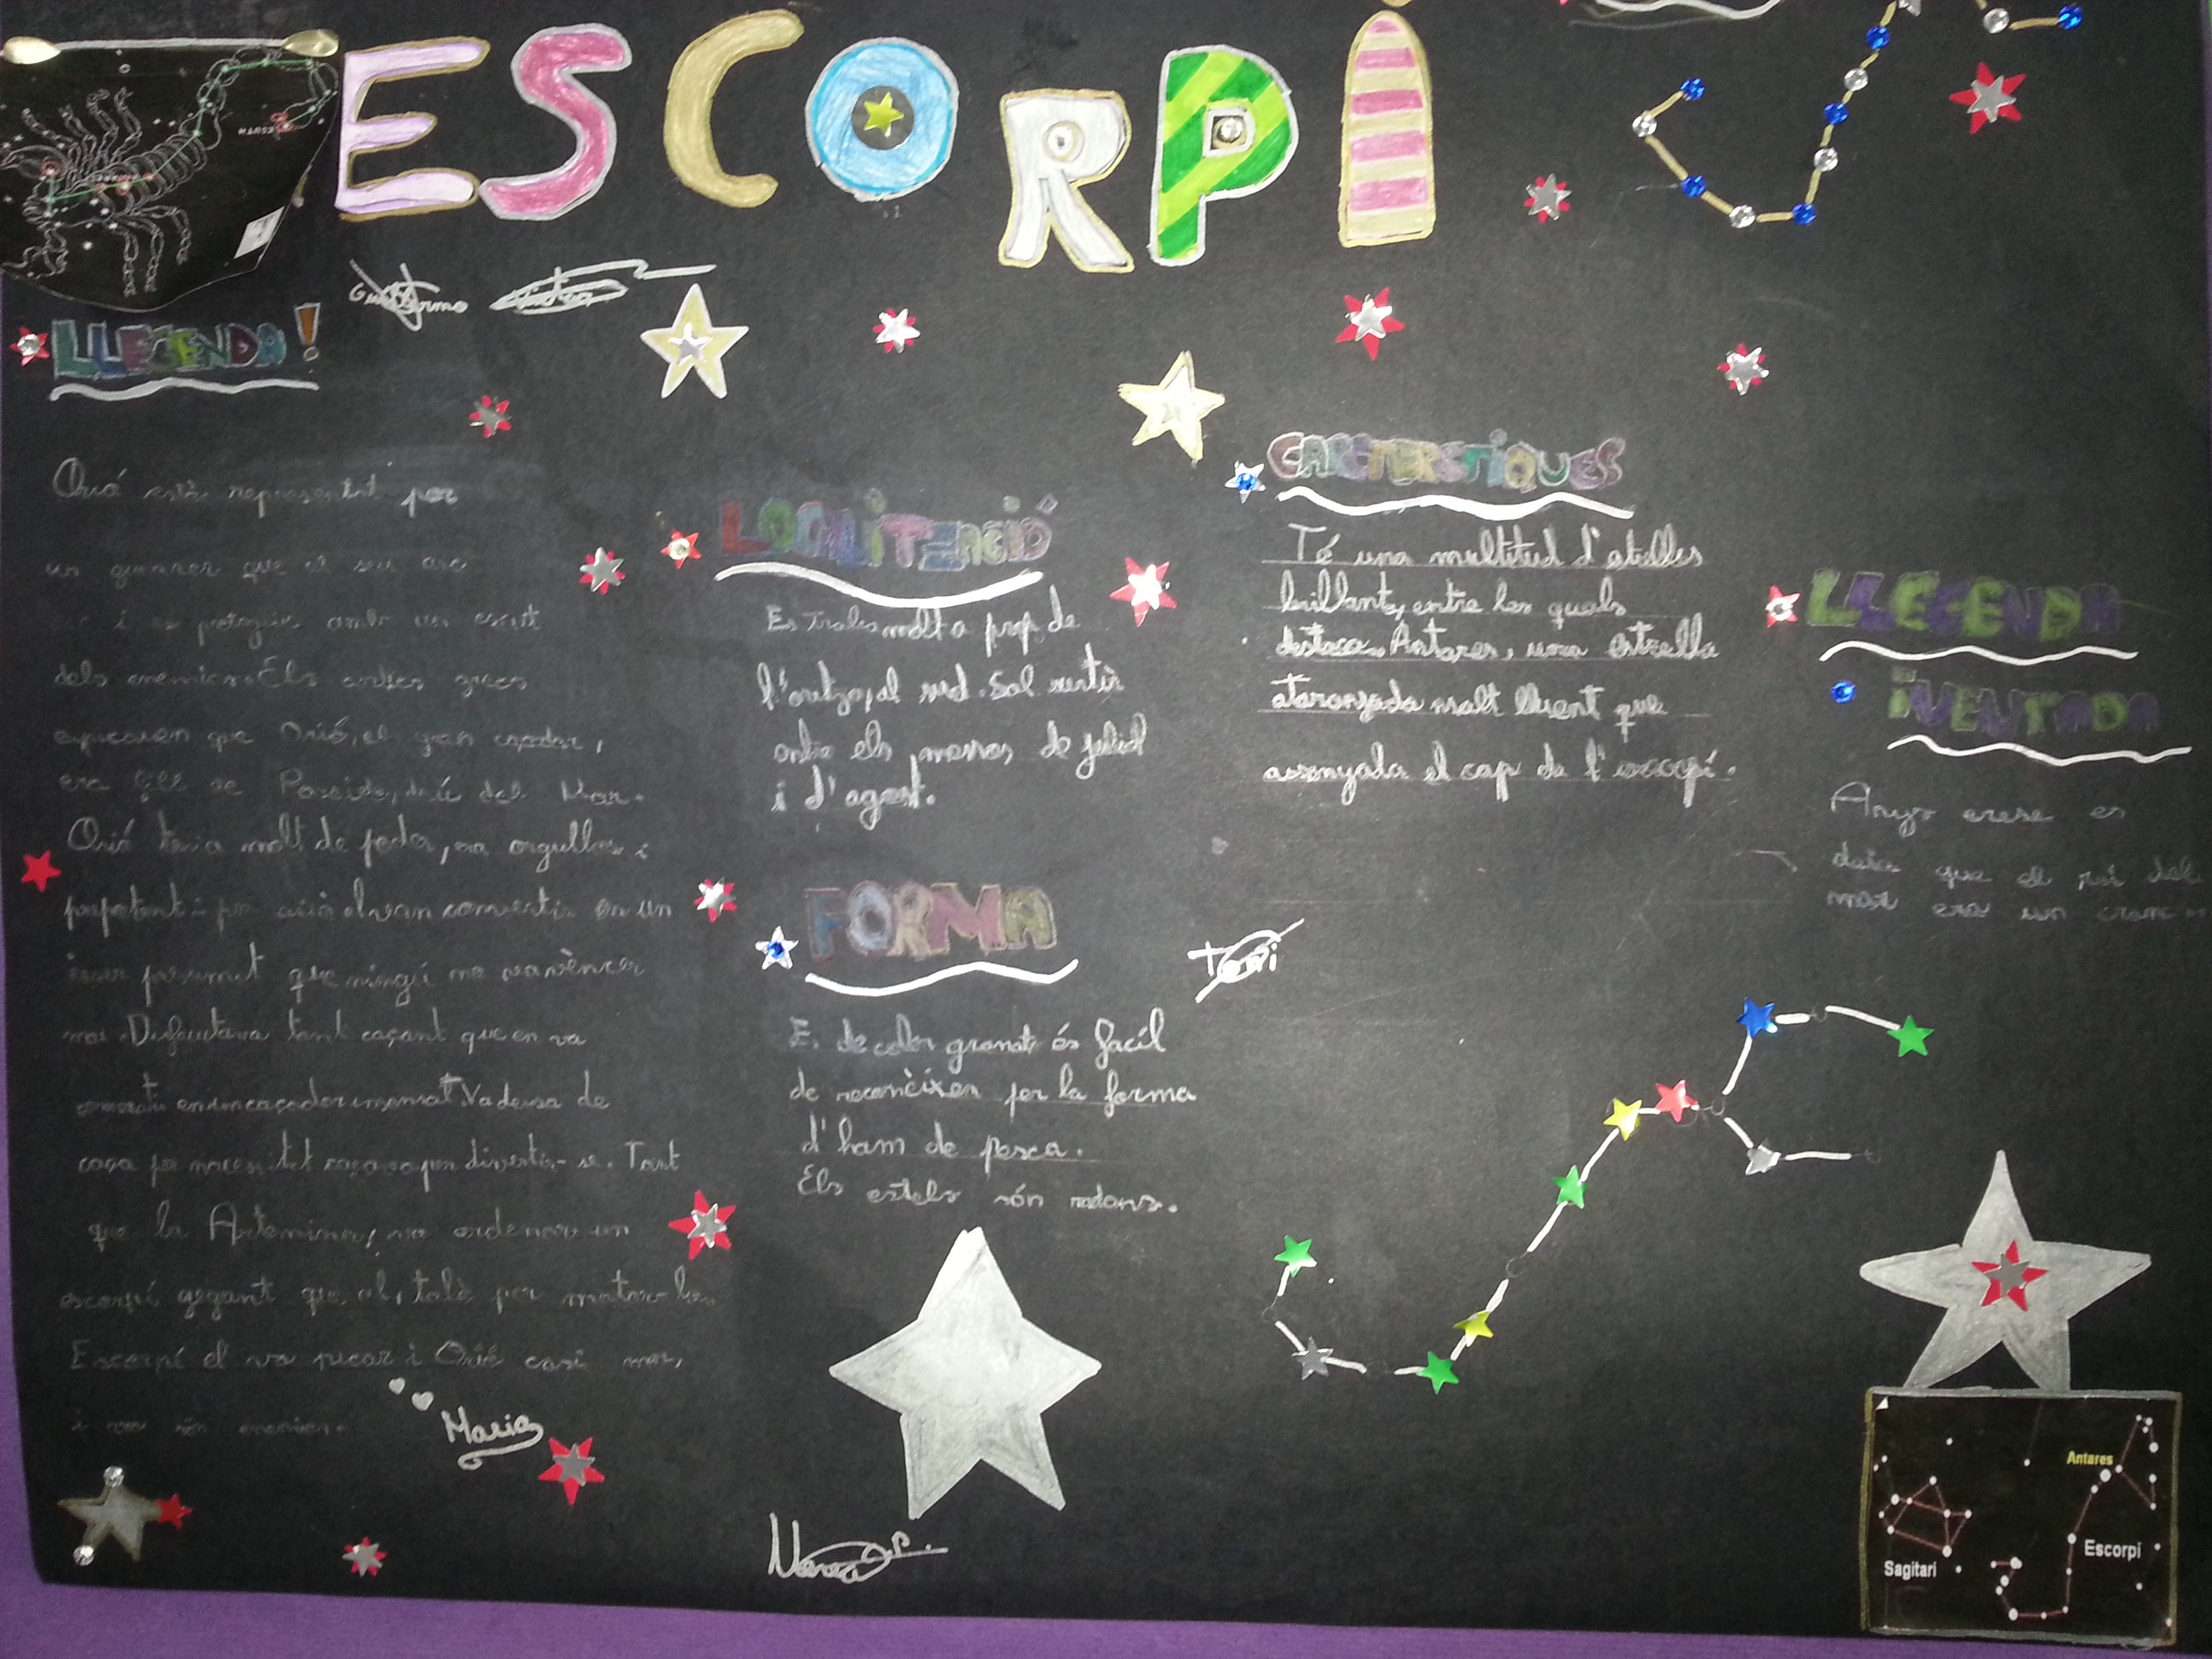 ESCORPÍ
Guillermo
LLEGENDA!
Orió està representat per
un guerrer que el seu arc
i es protegix amb un escut
dels enemics. Els antics grecs
expicaven que Orió, el gran caçador,
era fill de Poseido, déu del Mar.
Orió tenia molt de poder, era orgullos i
prepotent i per això el van convertir en un
presumit que ningú
mes. Disfrutava tant caçant que en va
convertir en un caçador inmensat Va deixa de
caça per necesitat caçava per divertir-se. Tant
que la va ordenar un
escorpí gegant que per matar-lo.
Escorpí el va picar i Orió casi
i
Maria
LOCALITZACIÓ
Es troba molt a prop de
l'oritzo, al sud. Sol sortir
entre els mesos de juliol
i d'agost.
FORMA
E. de color granat és facíl
de reconèixer per la forma
d'ham de pesca.
Els estels són rodons.
CARCTERSTIQUES
Té una multitud d'estelles
brillants, entre les quals
destaca Antares, una estrella
ataronjada molt lluent que
assenyala el cap de l'escorpí.
Toni
LLEGENDA
iNVENTADA
Anys erere es
deia que el rei del
mar era un cranc
Antares
Escorpí
Sagitari